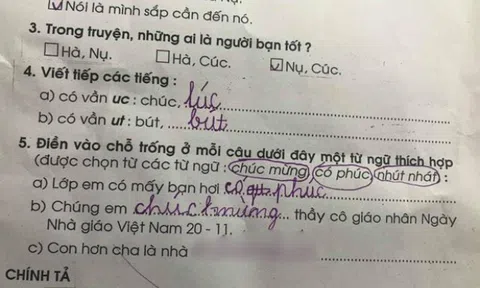 Nói là mình sắp cần đến nó.
3. Trong truyện, những ai là người bạn tốt ?
Hà, Nụ. Hà, Cúc. Nụ, Cúc.
4. Viết tiếp các tiếng :
a) có vần uc : chúc, lúc
b) có vần ut : bút, bút
5. Điền vào chỗ trống ở mỗi câu dưới đây một từ ngữ thích hợp
(được chọn từ các từ ngữ : chúc mừng, có phúc, nhút nhát) :
a) Lớp em có mấy bạn hơi có phúc
b) Chúng em chúc mừng... thầy cô giáo nhân Ngày
Nhà giáo Việt Nam 20 - 11.
c) Con hơn cha là nhà
CHÍNH TẢ